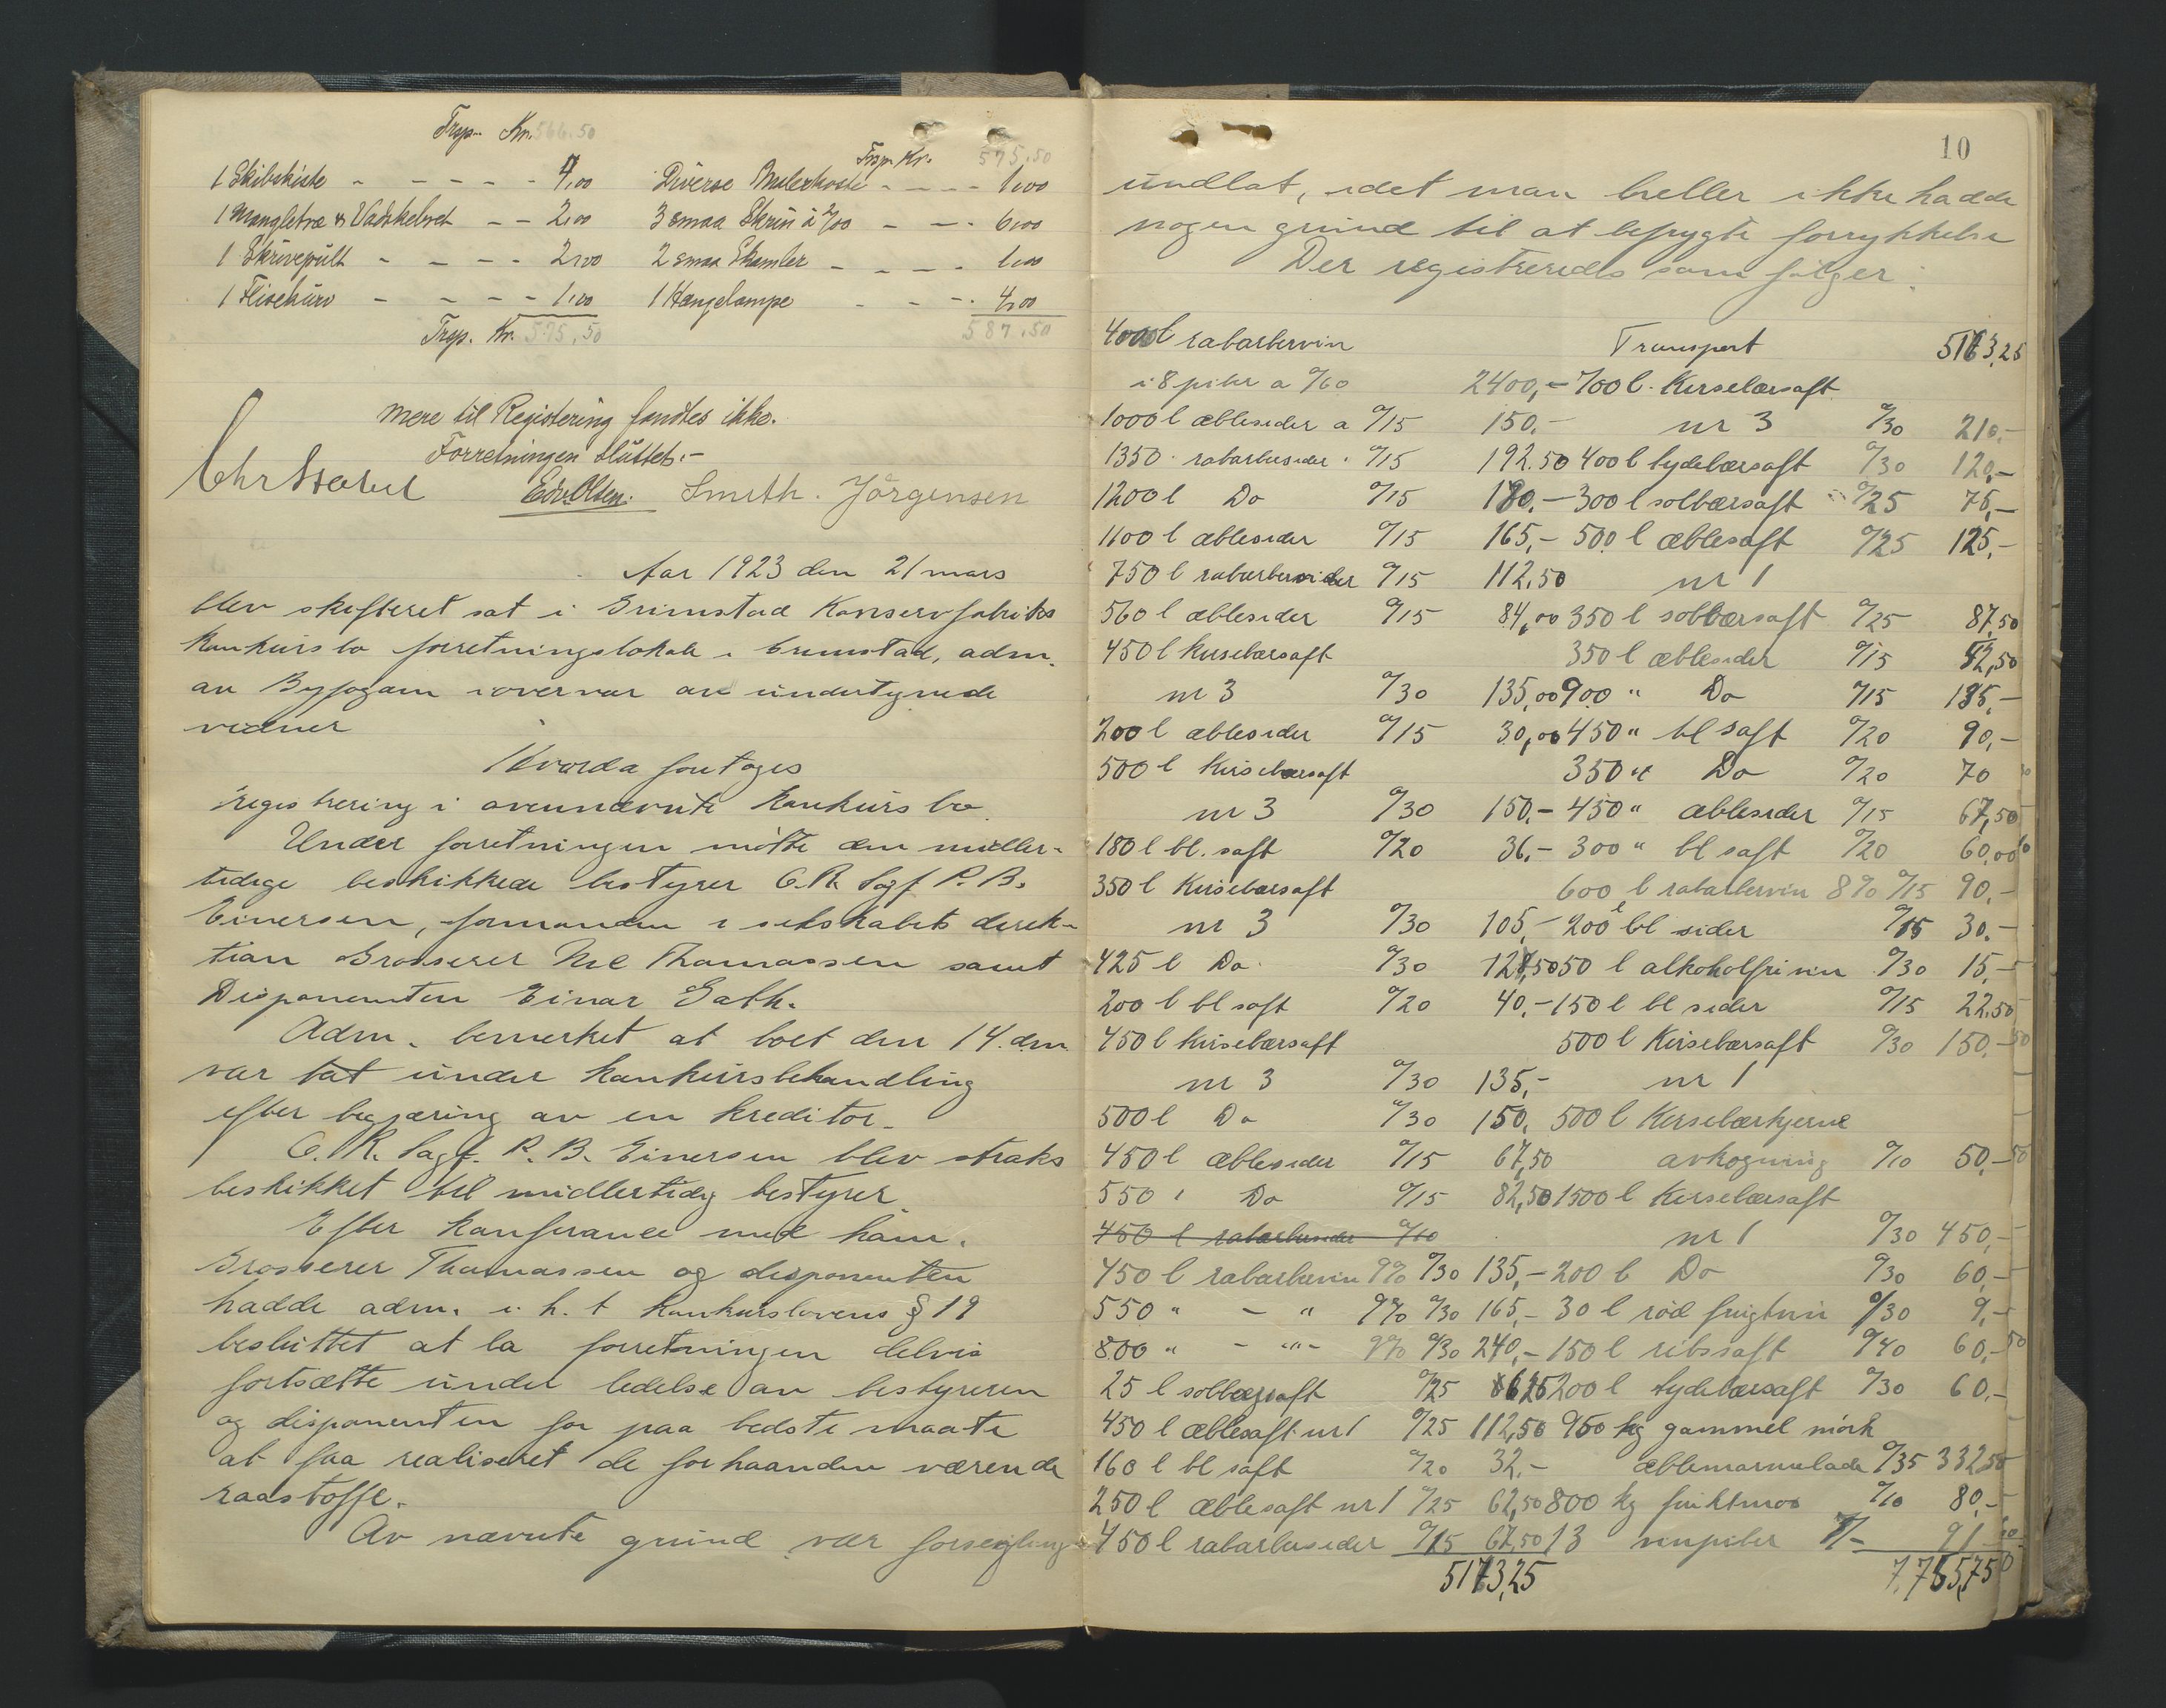 Trsp. Kr. 566.50
1 Skibskiste - - - - - 4,00
1 Mangletræ & Vadskebret - - 2,00
1 Skrivepült - - - - 2,00
1 Flisekürv - - - - 1,00
Trsp. Kr. 575,50
Trsp. Kr. 575,50
Diverse Malerkoste - - - - 1,00
3 smaa Skrin à 2/00 - - - 6,00
2 smaa Skamler - - - - 1,00
1 Hængelampe - - - 4,00
587.50
Mere til Registering fandtes ikke.
Forretningen slüttet.-
Edv. Olsen. Smith. Jörgensen
Aar 1923 den 21 mars
blev skifteret sat i Grimstad Konservfabriks
konkürsbo forretningslokale i Grimstad, adm.
av Byfogden i overvær av ündertegnede
vidner
Hvorda foretoges
registrering i ovennævnte konkürsbo.
Ünder forretningen mötte den midler-
tidige beskikkede bestyrer O.R. Sagf. P. B.
Einersen, formanden i selskabets direk-
tion Grosserer Thomassen samt
Disponenten Einar Gath.
Adm. bemerket at boet den 14. dm.
var tat ünder konkürsbehandling
efter begjæring av en kreditor.
O. R. Sagf. P. B. Einersen blev straks
beskikket til midlertidig bestyrer.
Efter konferance med ham,
Grosserer Thomassen og disponenten
hadde adm. i h. t konkurslovens § 19
beslüttet at la forretningen delvis
fortsætte ünder ledelse av bestyreren
og disponenten for paa bedste maate
at faa realiseret de forhaanden værende
raastoffe.
Av nævnte gründ var forsegling
10
ündlat, idet man heller ikke hadde
nogen gründ til at befrygte forrykkelse
Der registreredes som fölger:
4000 l rabarbervin
i 8 piber a %60 2400,-
1000 l æblesider a %15 150.-
1350 " rabarbersider " %15 192.50
1200 l Do %15 180.-
1100 l æblesider %15 165,-
750 l rabarbersider %15 112.50
560 l æblesider %15 84,00
450 l kirsebærsaft
nr 3 %30 135,00
200 l æblesider %15 30,00
500 l Kirsebærsaft
nr 3 %30 150.-
180 l bl. saft %20 36,-
350 l Kirsebærsaft
nr 3 %30 105,-
425 l Do %30 127,50
200 l bl saft %20 40,-
450 l kirsebærsaft
nr 3 %30 135,-
500 l Do %30 150,
450 l æblesider %15 67,50
550 " Do %15 82,50
450 l rabarbersider %10
450 l rabarbervin 9% %30 135,-
550 " - " 9% %30 165,-
800 " - " - 9% %30 240,-
25 l solbærsaft %25 6,25
450 l æblesaft nr 1 %25 112,50
160 l bl saft %20 32,-
250 l æblesaft nr 1 %25 62,50
450 l rabarbersider %15 67,50
5173,25
Transport 5173,25
700 l. Kirsebærsaft
nr 3 %30 210.-
400 l tydebærsaft %30 120,-
300 l solbærsaft %25 75,-
500 l æblesaft %25 125,-
nr 1
350 l solbærsaft %25 87,50
350 l æblesider %15 52,50
900 " Do %15 135,-
450 " bl saft %20 90,-
350 " Do %20 70
450 " æblesider %15 67,50
300 " bl saft %20 60,00
600 l rabarbervin 8% %15 90,-
200 l bl sider %15 30.-
50 l alkoholfri vin %30 15,-
150 l bl sider %15 22.50
500 l Kirsebærsaft %30 150,-
nr 1
500 l Kirsebærkjerne
avkogning %10 50,-
1500 l Kirsebærsaft
nr 1 %30 450,-
200 l Do %30 60,-
30 l röd frugtvin %30 9,-
150 l ribssaft %40 60,-
200 l tydebærsaft %30 60,-
950 kg gammel mörk
æblemarmelade %35 332,50
800 kg fruktmos %10 80,-
13 vinpiber 7/- 91
7,765,75